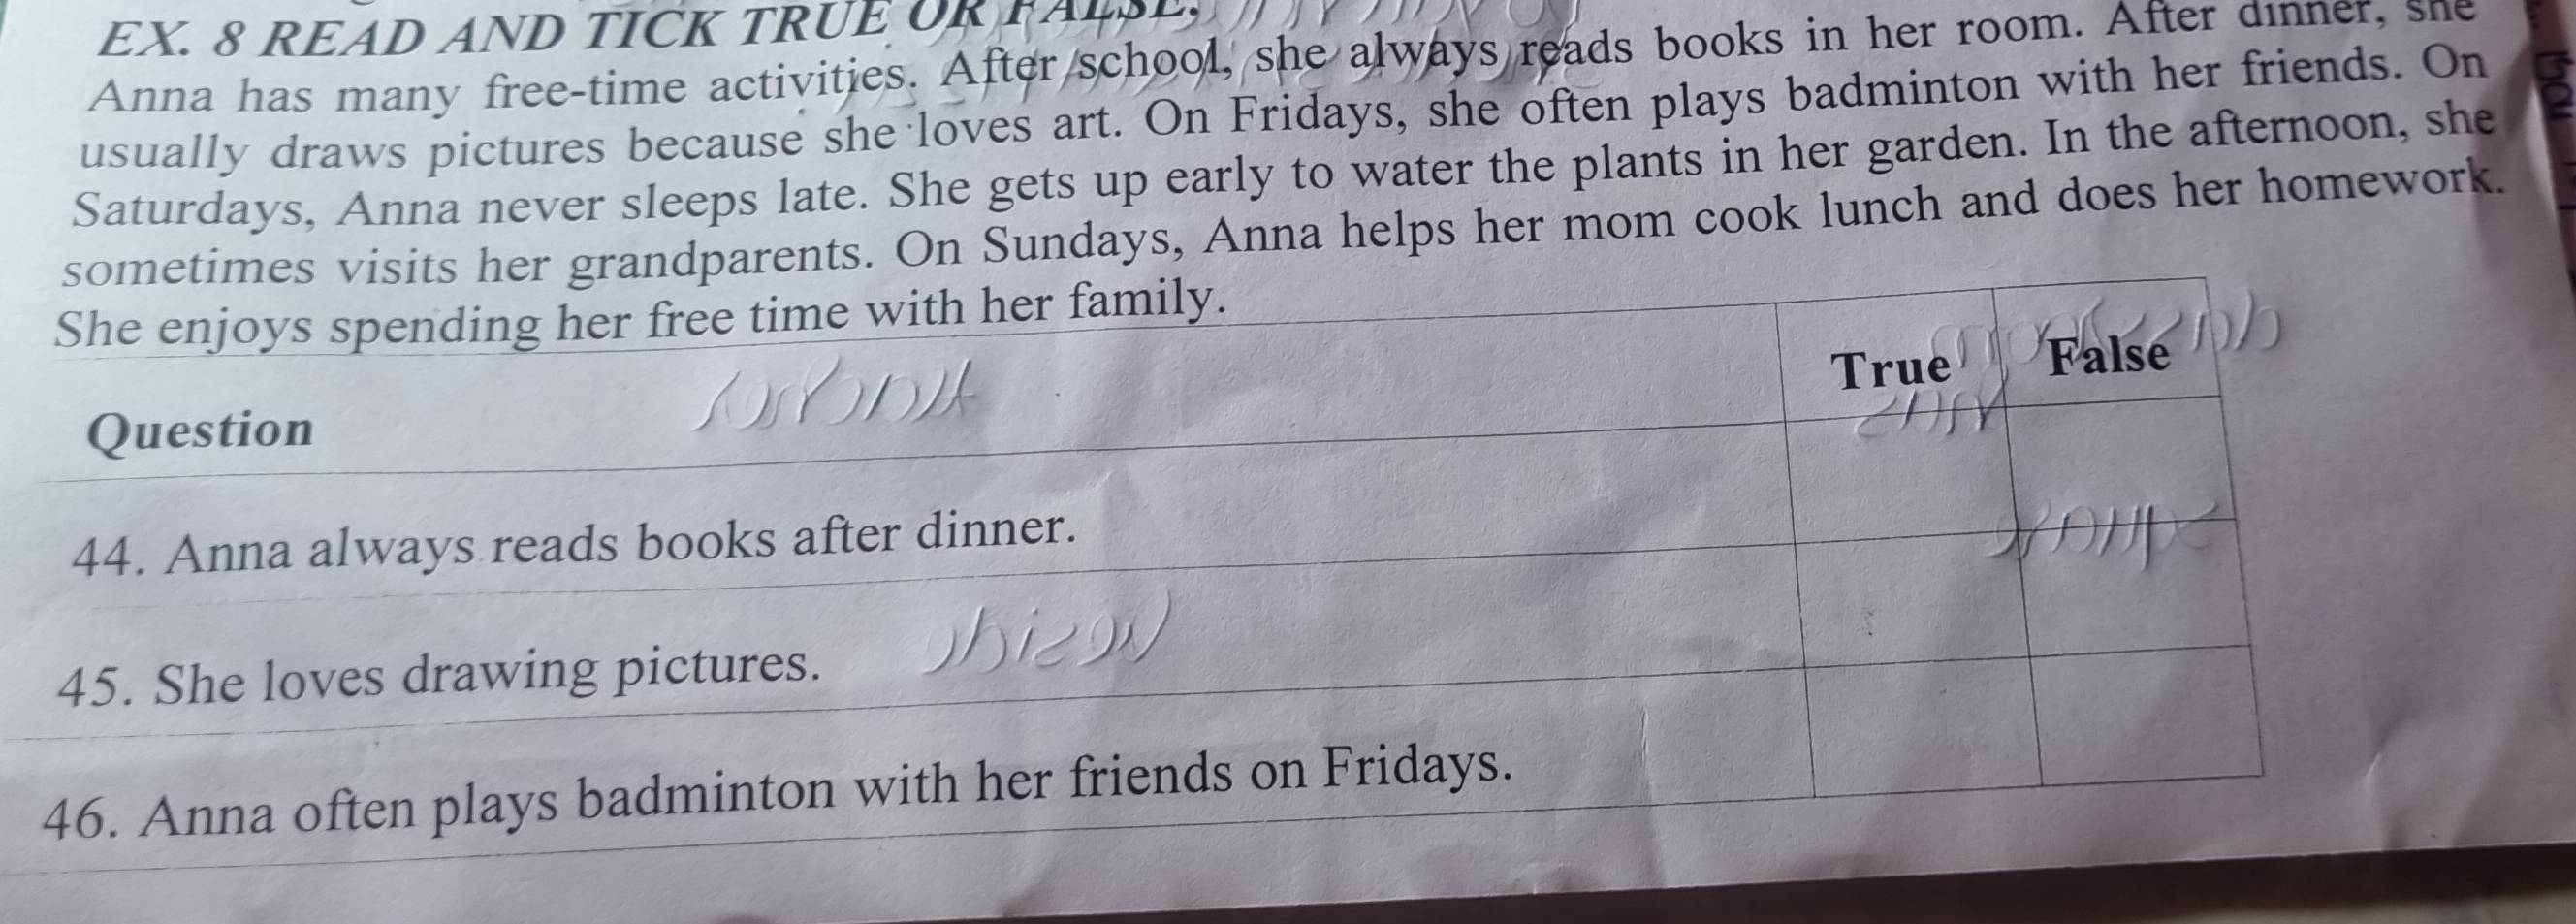 EX. 8 READ AND TICK TRUE OR FALSE.
Anna has many free-time activities. After school, she always reads books in her room. After dinner, she
usually draws pictures because she loves art. On Fridays, she often plays badminton with her friends. On
Saturdays, Anna never sleeps late. She gets up early to water the plants in her garden. In the afternoon, she
sometimes visits her grandparents. On Sundays, Anna helps her mom cook lunch and does her homework.
She enjoys spending her free time with her family.
Question True False
44. Anna always reads books after dinner.
45. She loves drawing pictures.
46. Anna often plays badminton with her friends on Fridays.